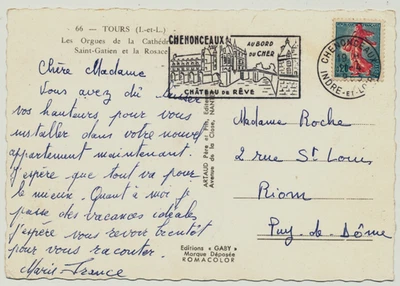 66 — TOURS (I.-et-L.)
Les Orgues de la Cathédr
Saint-Gatien et la Rosace
CHENONCEAUX
AU BORD
DU CHER
CHÂTEAU DU RÊVE
CHENONCEAUX
INDRE-ET-LOIRE
Chère Madame
Vous avez dû laisser
vos hauteurs, pour vous
installer dans votre nouvel
appartement maintenant.
J'espère que tout va pour
le mieux. Quant à moi je
passe des vacances idéales
J'espère vous revoir bientôt
pour vous raconter.
Marie-France
ARTAUD Père et Fils, Édite
Avenue de la Close, NAN
Editions « GABY »
Marque Déposée
ROMACOLOR
Madame Roche
2 rue St Louis
Riom
Puy-de-Dôme